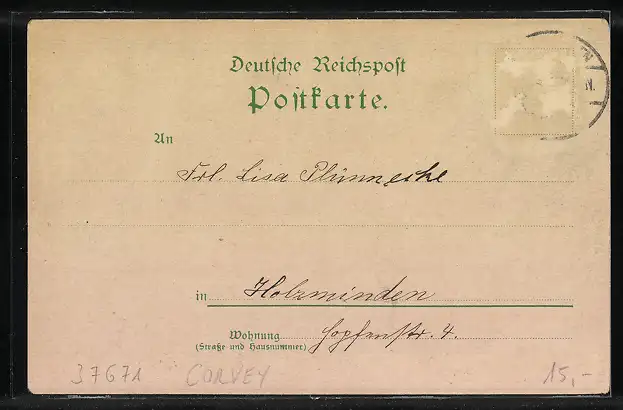 Deutsche Reichspost
Postkarte.
N.
An
Frl. Lisa Plünnecke
in Holzminden
Wohnung Hopfenstr. 4.
(Straße und Hausnummer)
37671 CORVEY 15,-